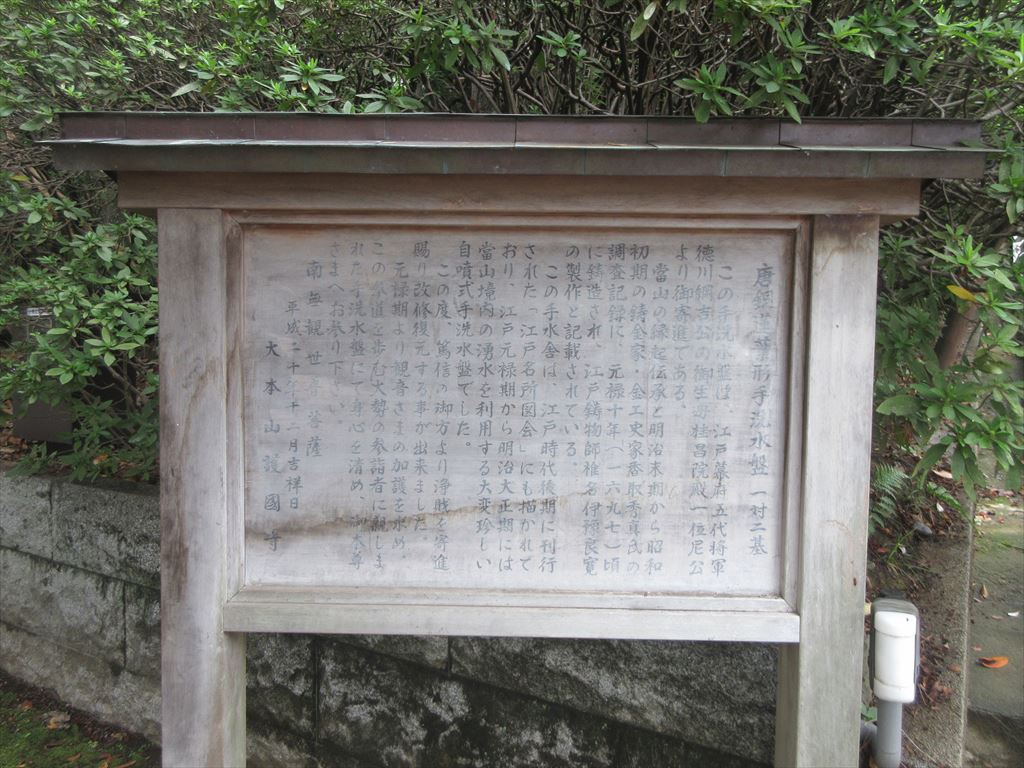 唐銅蓮葉形手洗水盤 一対二基
この手洗水盤は、江戸幕府五代将軍
徳川綱吉公の御生母桂昌院殿一位尼公
より御寄進である。
當山の縁起伝承と明治末期から昭和
初期の鋳金家・金工史家香取秀真氏の
調査記録に、元禄十年(一六九七)頃
に鋳造され、江戸鋳物師椎名伊豫良寛
の製作と記載されている。
この手水舎は、江戸時代後期に刊行
された「江戸名所図会」にも描かれて
おり、江戸元禄期から明治大正期には
當山境内の湧水を利用する大変珍しい
自噴式手洗水盤でした。
この度、篤信の御方より浄財を寄進
賜り改修復元する事が出来ました。
元禄期より観音さまの加護を求め、
この参道を歩む大勢の参詣者に親しま
れた手洗水盤にて身心を清め、御本尊
さまへお参り下さい。
南無観世音菩薩
平成二十年十二月吉祥日
大本山 護國寺